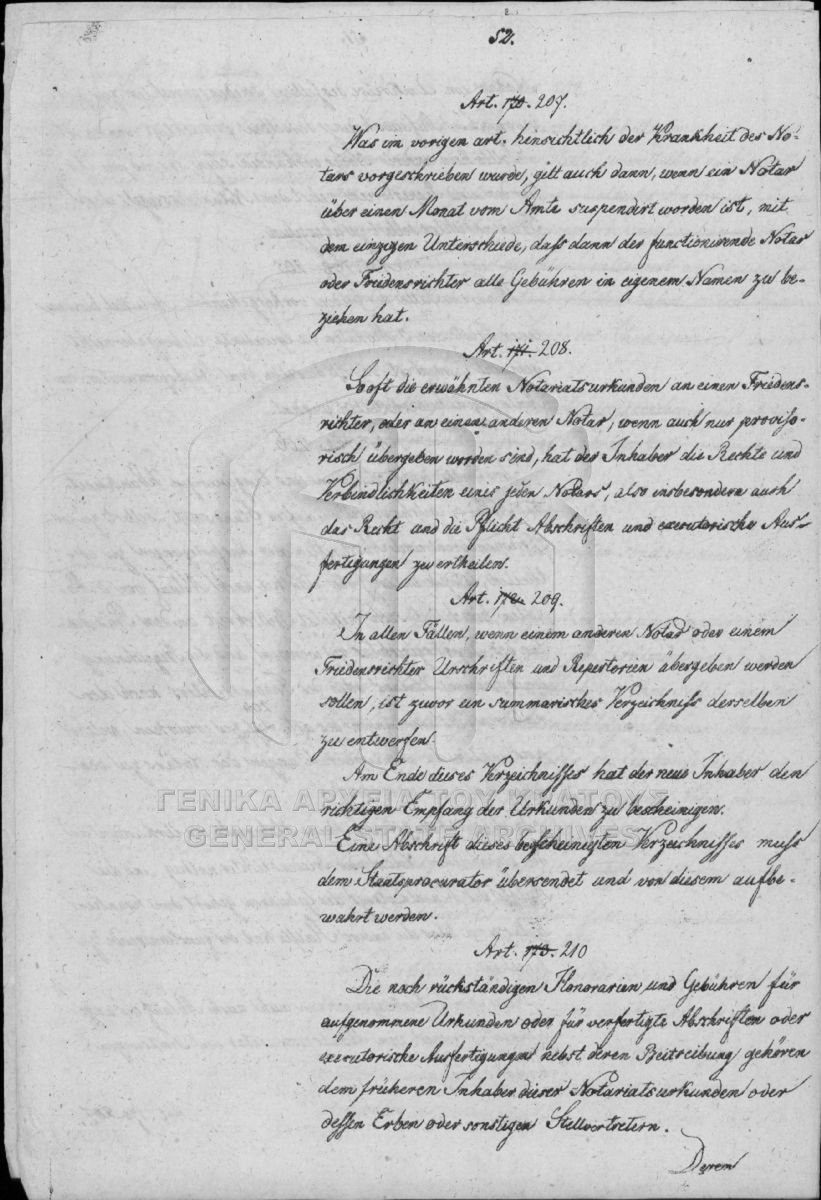 52.
Art. 170. 207.
Was im vorigen art. hinsichtlich der Krankheit des No-
tars vorgeschrieben wurde, gilt auch dann, wenn ein Notar
über einen Monat vom Amte suspendirt worden ist, mit
dem einzigen Unterschiede, daß dann der functionirende Notar
oder Friedensrichter alle Gebühren in eigenem Namen zu be-
ziehen hat.
Art. 171. 208.
So oft die erwähnten Notariatsurkunden an einen Friedens-
richter, oder an einen anderen Notar, wenn auch nur proviso-
risch übergeben worden sind, hat der Inhaber die Rechte und
Verbindlichkeiten eines jeden Notars, also insbesondere auch
das Recht und die Pflicht Abschriften und executorische Aus-
fertigungen zu ertheilen.
Art. 172. 209.
In allen Fällen, wenn einem anderen Notar oder einem
Friedensrichter Urschriften und Repertorien übergeben werden
sollen, ist zuvor ein summarisches Verzeichniß derselben
zu entwerfen.
Am Ende dieses Verzeichnißes hat der neue Inhaber den
richtigen Empfang der Urkunden zu bescheinigen.
ΓΕΝΙΚΑ ΑΡΧΕΙΑ ΤΟΥ ΚΡΑΤΟΥΣ
GENERAL STATE ARCHIVES
Eine Abschrift dieses bescheinigten Verzeichnißes muß
dem Staatsprocurator übersendet und von diesem aufbe-
wahrt werden.
Art. 173. 210
Die noch rückständigen Honorarien und Gebühren für
aufgenommene Urkunden oder für verfertigte Abschriften oder
executorische Ausfertigungen nebst deren Beitreibung gehören
dem früheren Inhaber dieser Notariatsurkunden oder
dessen Erben oder sonstigen Stellvertretern.
Derem